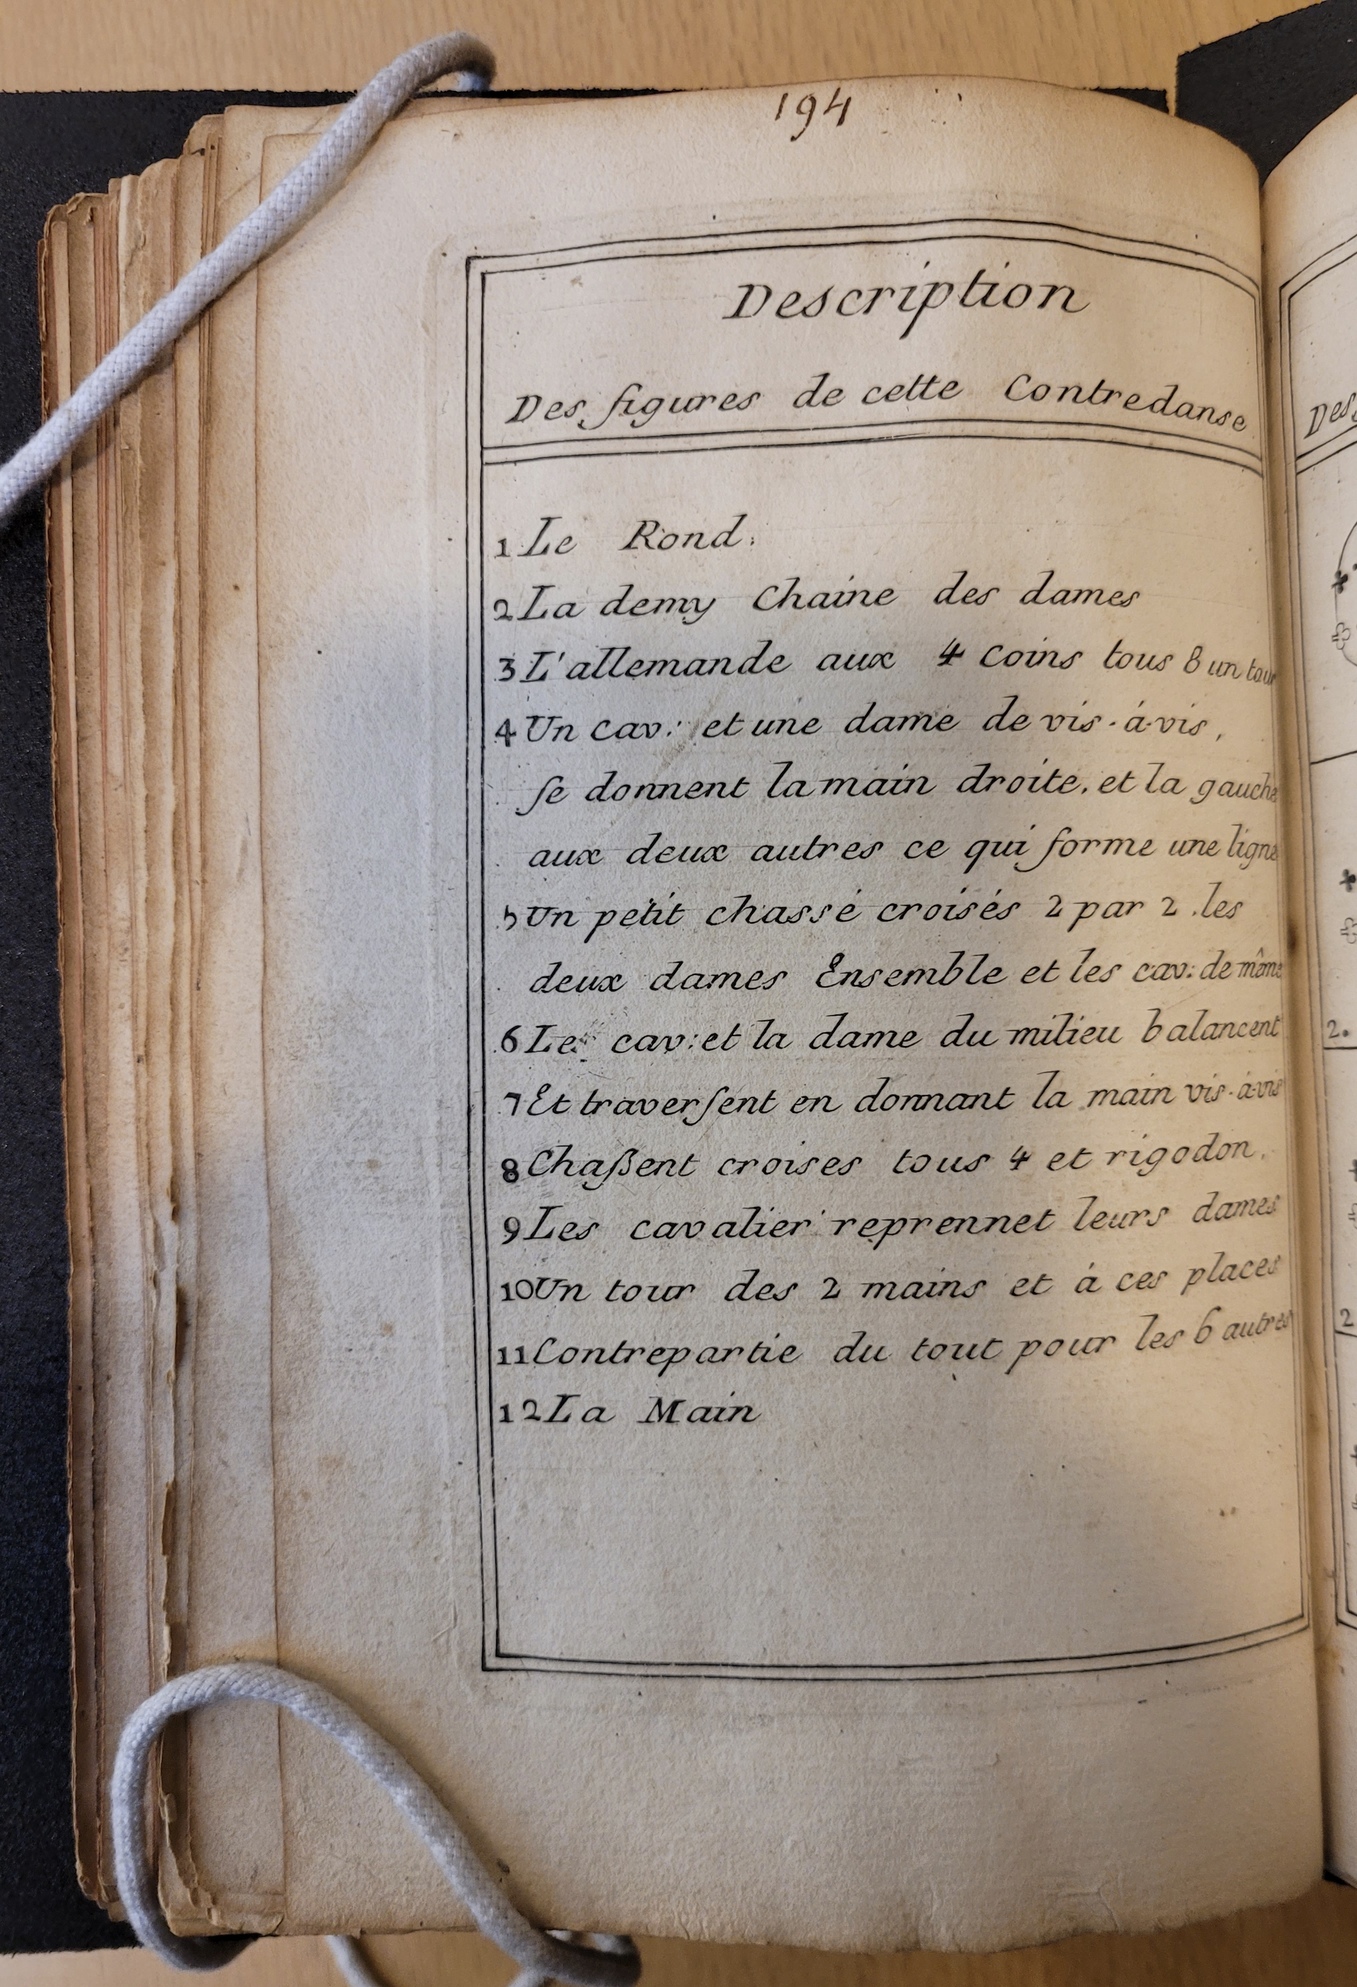 194
Description
Des figures de cette Contredanse
1 Le Rond.
2 La demy Chaine des dames
3 L'allemande aux 4 Coins tous 8 un tour
4 Un cav: et une dame de vis-à-vis,
se donnent la main droite, et la gauche
aux deux autres ce qui forme une ligne
5 Un petit chassé croisés 2 par 2 . les
deux dames Ensemble et les cav: de même
6 Le cav: et la dame du milieu balancent
7 Et traversent en donnant la main vis-à-vis
8 Chaßent croises tous 4 et rigodon.
9 Les cavalier reprennet leurs dames
10 Un tour des 2 mains et à ces places
11 Contrepartie du tout pour les 6 autres
12 La Main
Des
2.
2